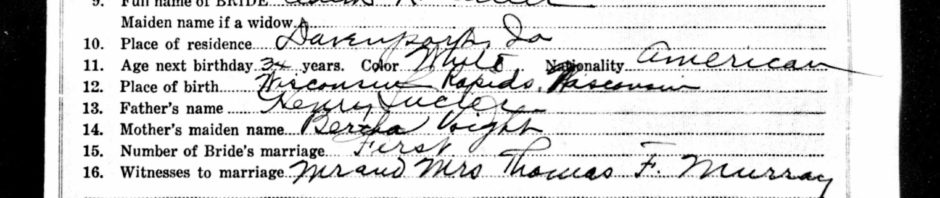 9. Full name of BRIDE
Maiden name if a widow
10. Place of residence Davenport, Io
11. Age next birthday 34 years. Color White Nationality American
12. Place of birth Wisconsin Rapids, Wisconsin
13. Father's name Henry
14. Mother's maiden name Bertha Voight
15. Number of Bride's marriage First
16. Witnesses to marriage Mr and Mrs Thomas F. Murray